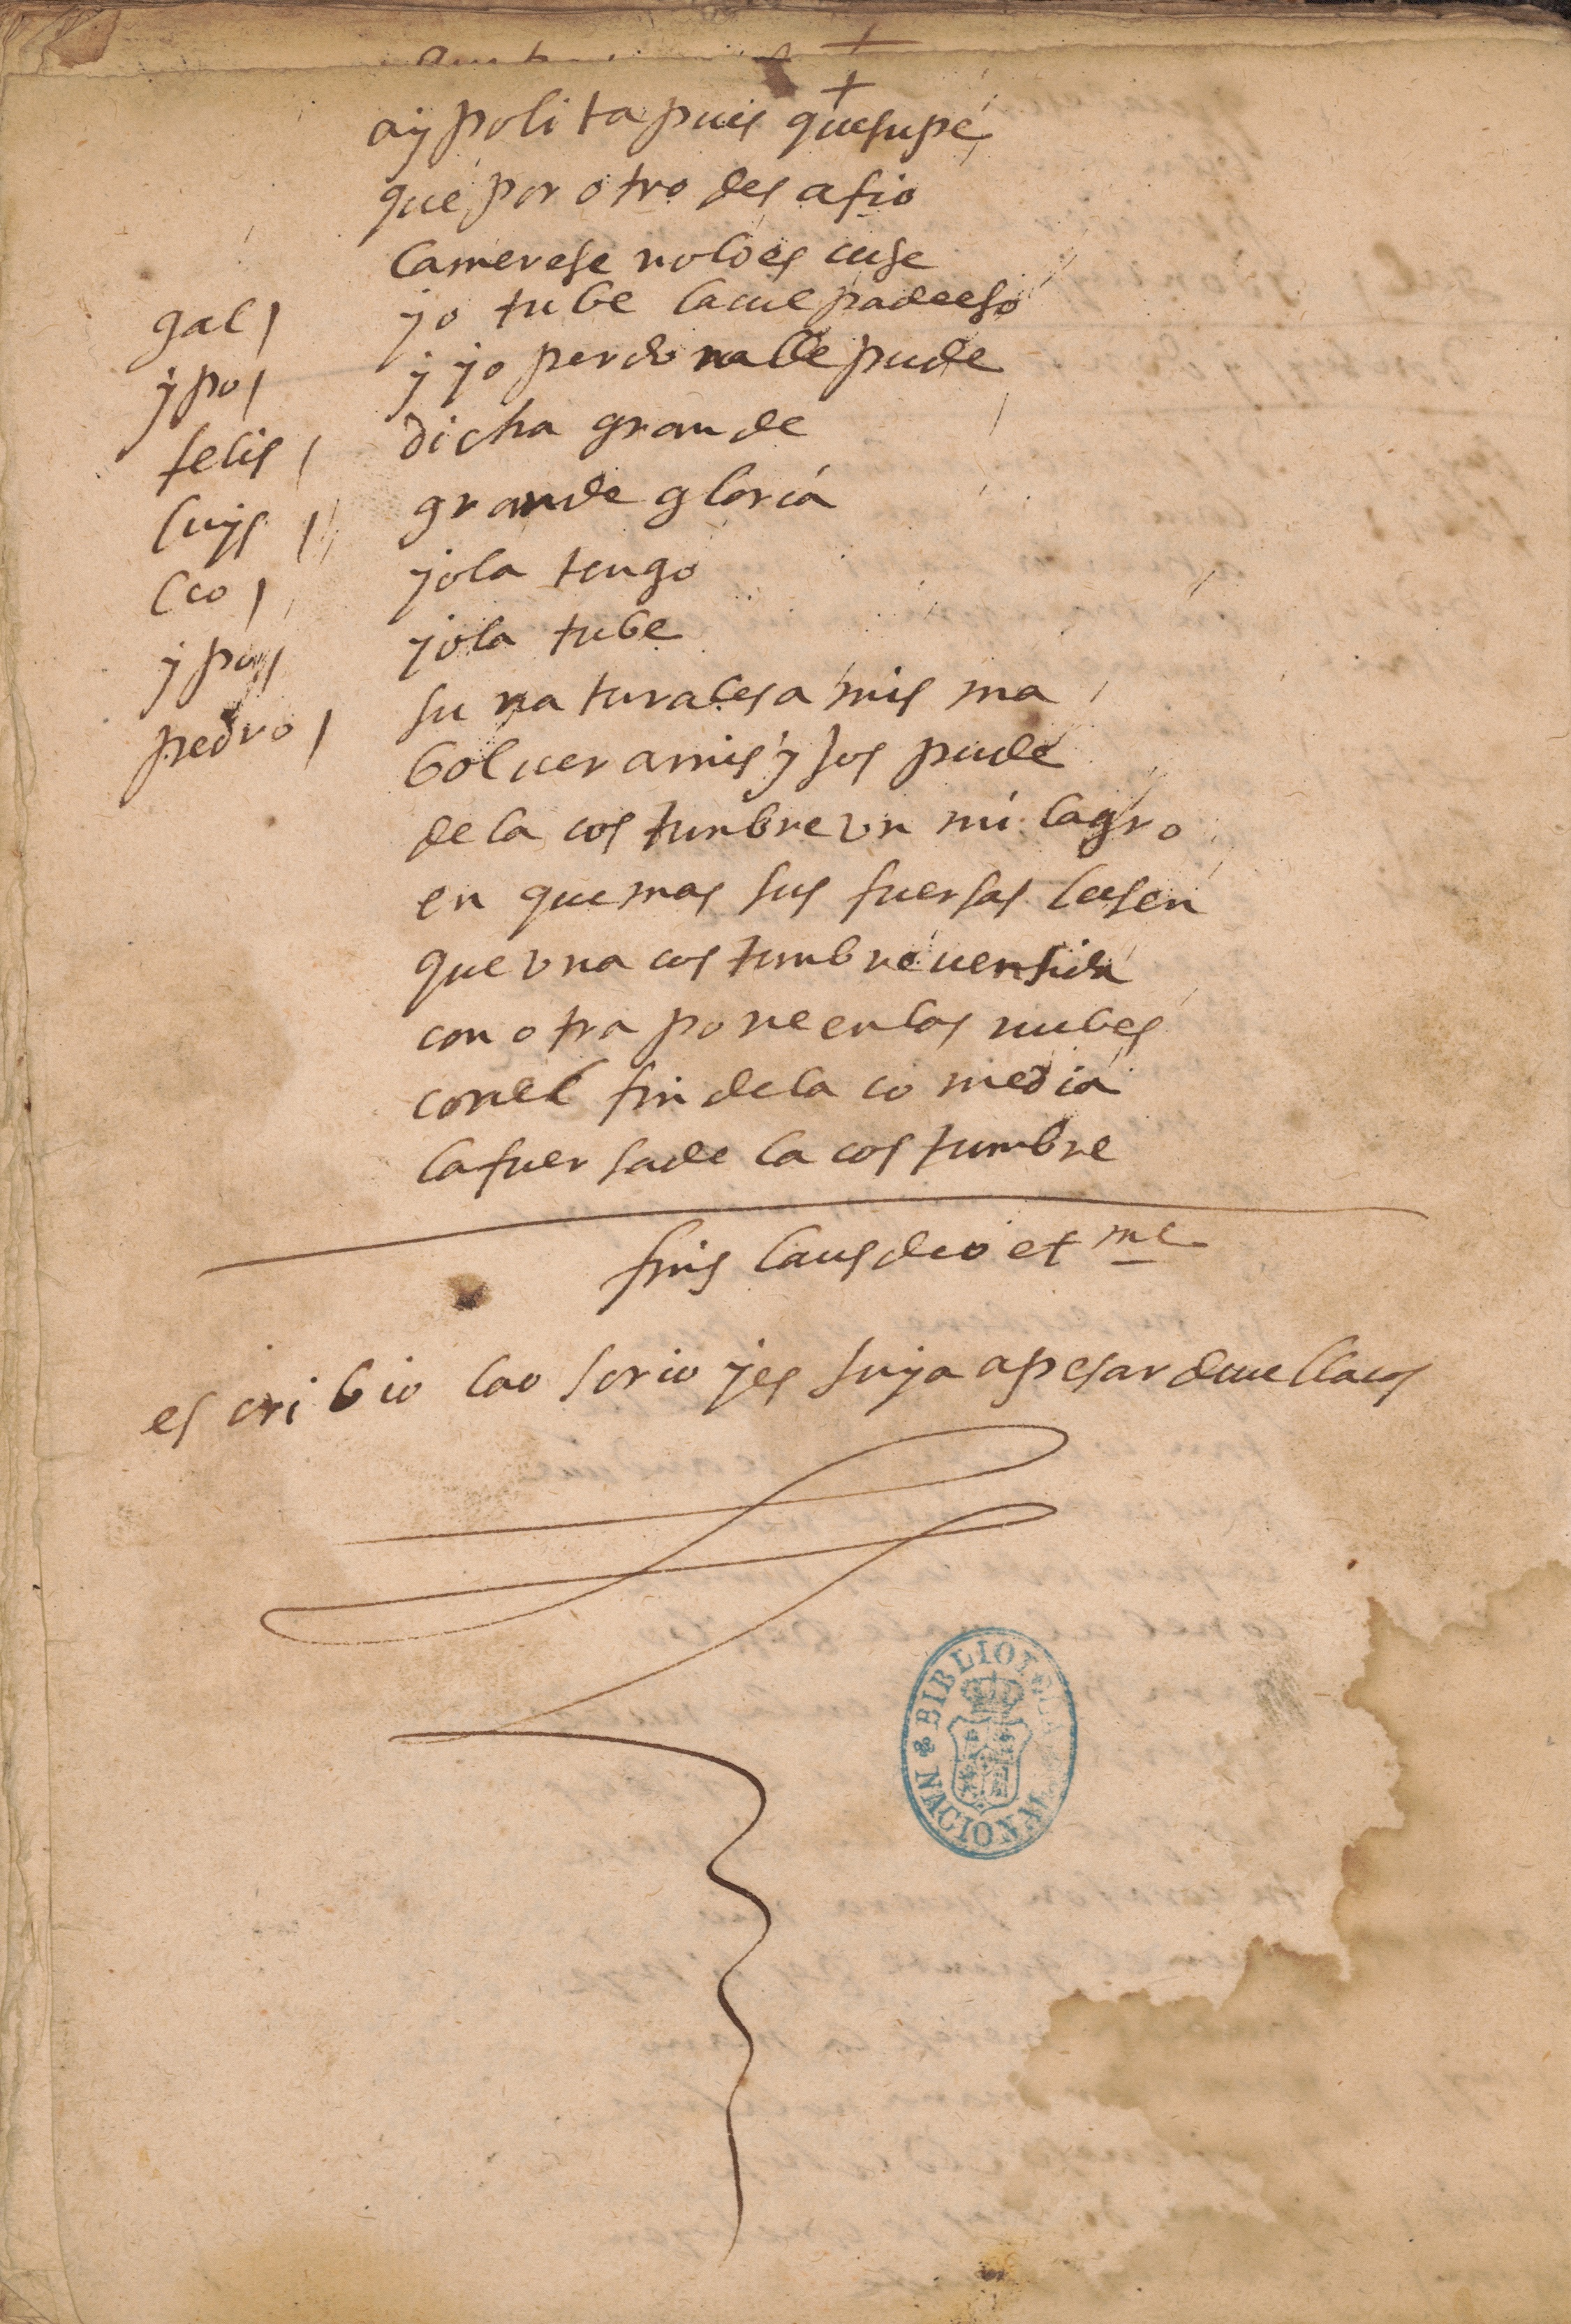 +
aypolita pues que supe
que por otro des afio
la merese nolo es cuse
gal/ yo tube la culpa de eso
ypo/ y yo perdonalle pude
felis/ dicha grande
luys/ grande gloria
leo/ yo la tengo
ypo/ yo la tube
pedro/ su naturalesa mis ma
boluer a mis yjos pude
de la costumbre vn milagro
en que mas sus fuersas lusen
que vna costumbre uensida
con otra pone en las nubes
con el fin de la comedia
la fuersa de la costumbre
finis laus deo et me
escribio la osorio y es suya a pesar de uellacos
BIBLIOTECA NACIONAL